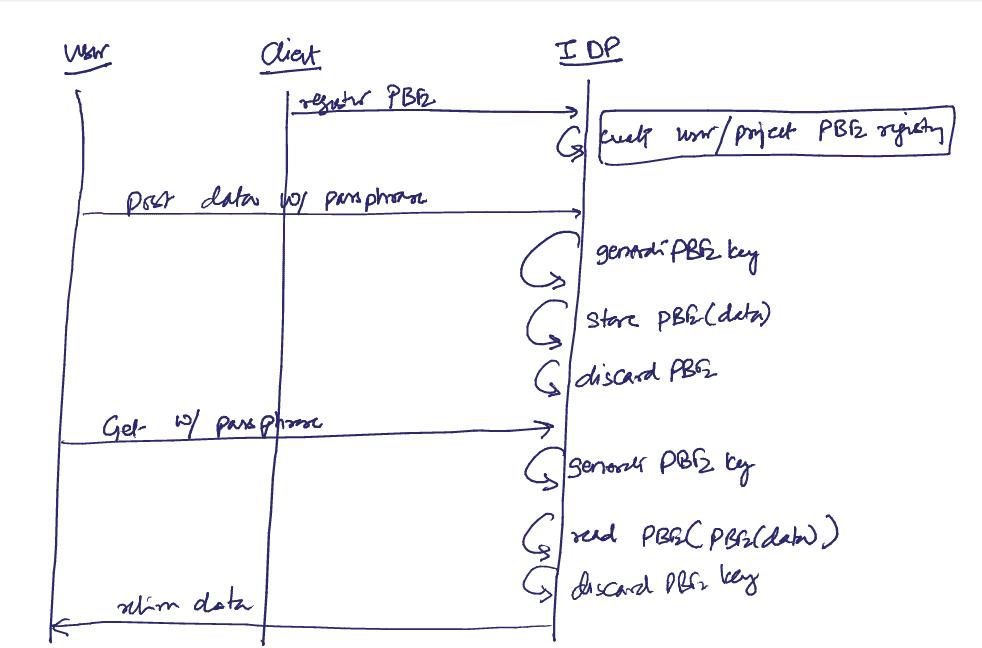 User
Client
IDP
register PBE2
create user/project PBE2 registry
Post data w/ passphrase
generate PBE2 key
store PBE2(data)
discard PBE2
Get w/ passphrase
generate PBE2 key
read PBE2(PBE2(data))
discard PBE2 key
return data